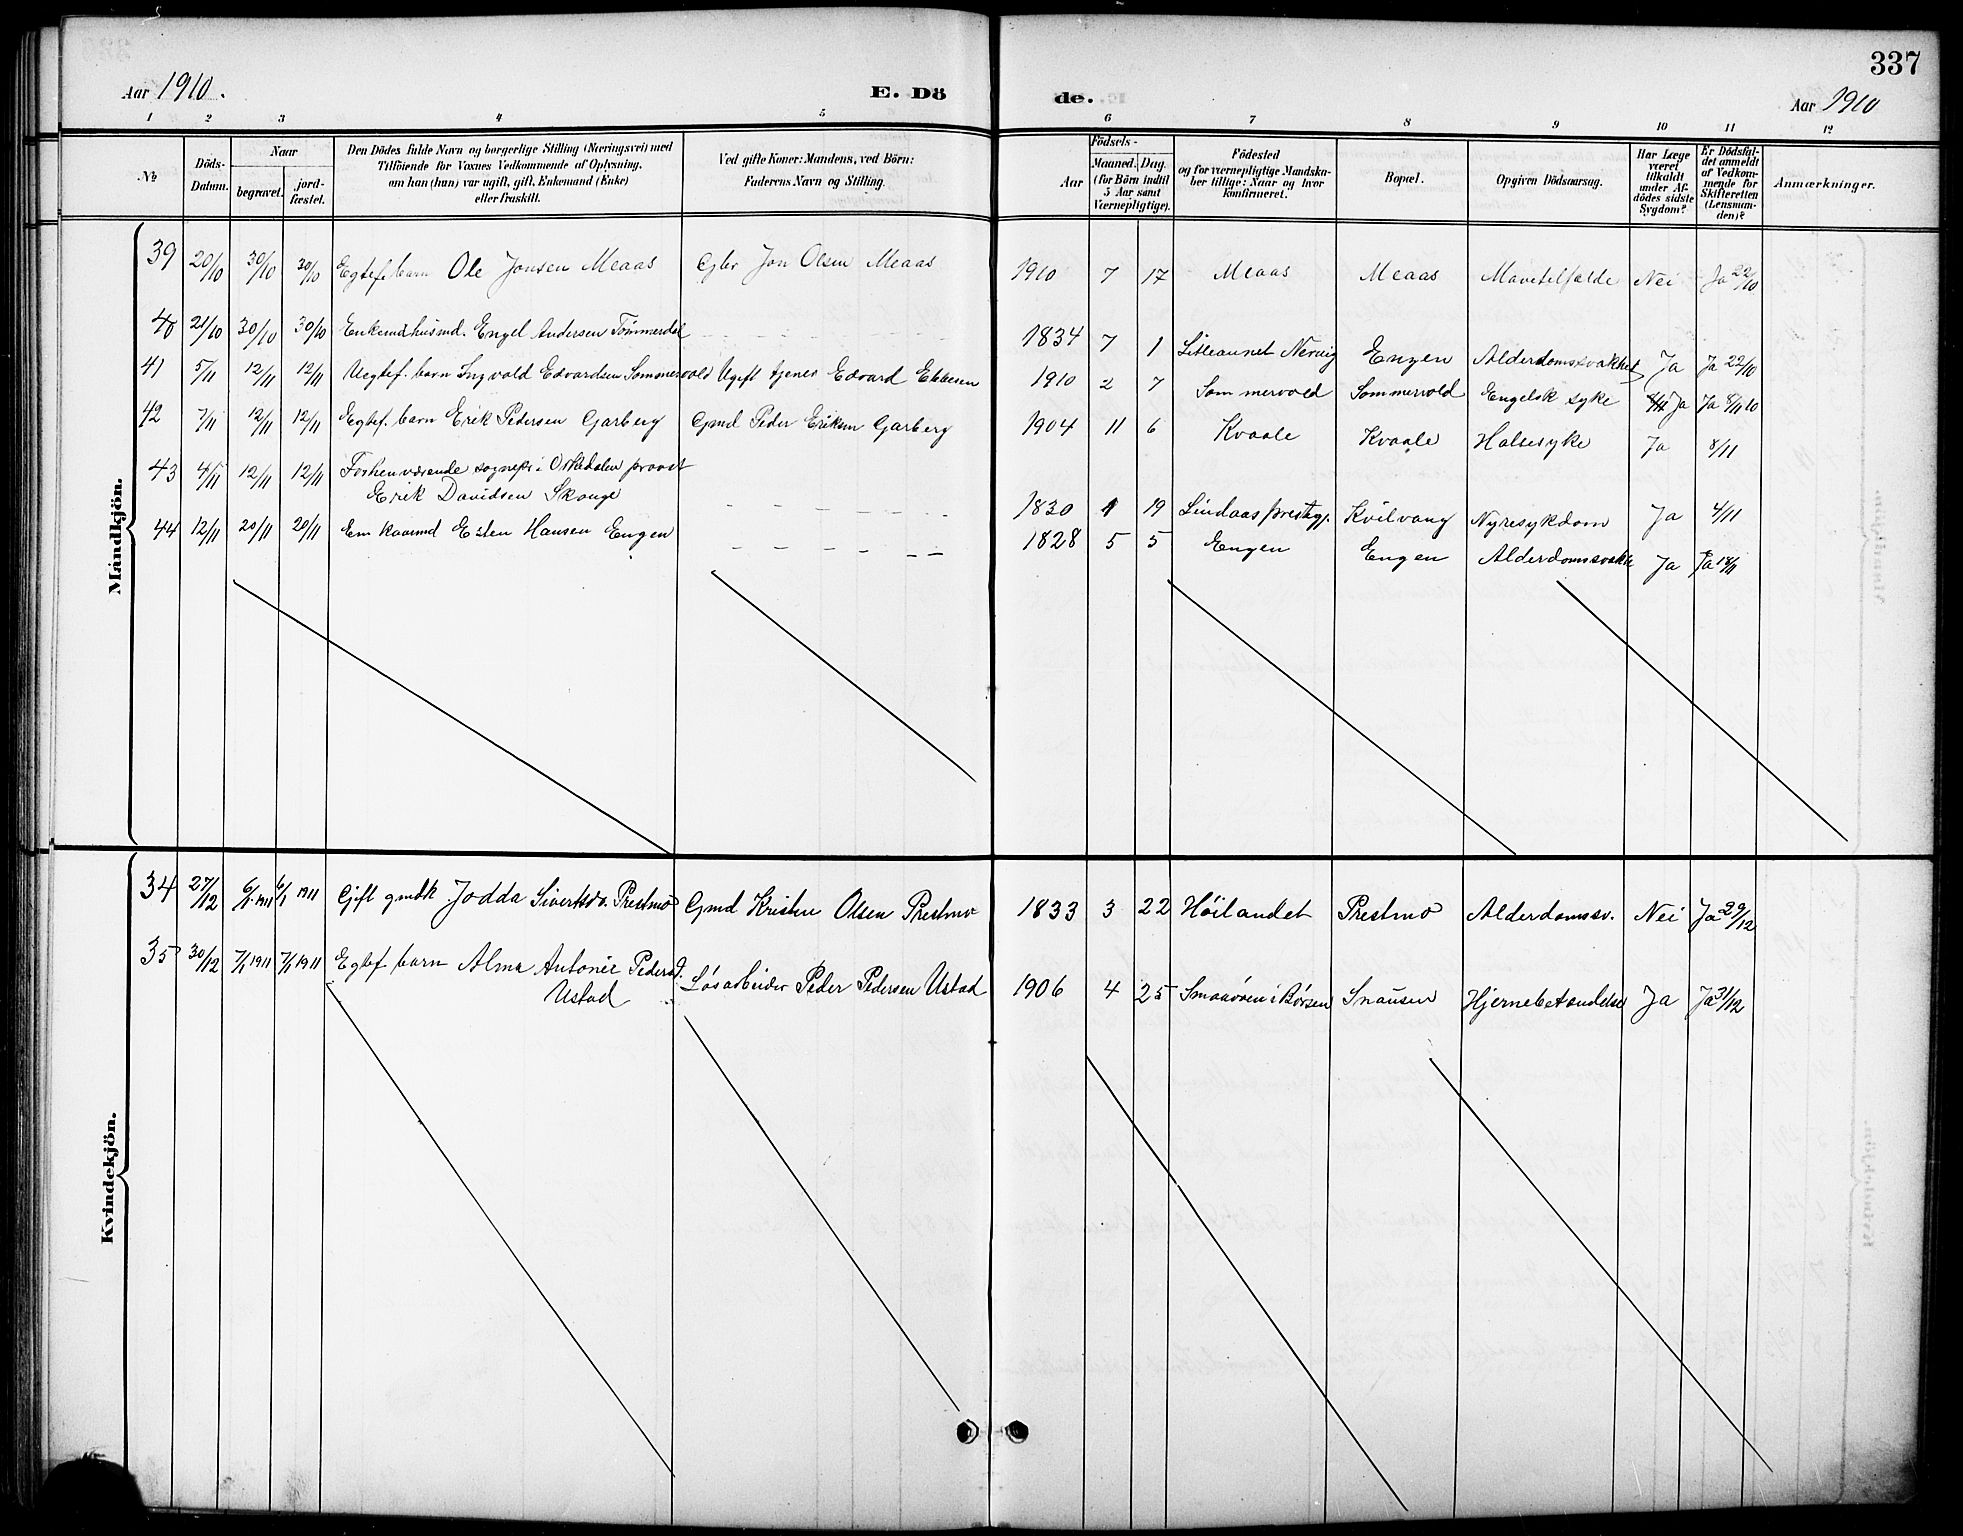 337
Aar 1910.
E. Dö
de.
Aar 1910
1 2 3 4 5 6 7 8 9 10 11 12
No
Döds-Datum.
Naar
begravet.
jord-fæstet.
Den Dödes fulde Navn og borgerlige Stilling (Næringsvei) med
Tilföiende for Voxnes Vedkommende af Oplysning,
om han (hun) var ugift, gift, Enkemand (Enke)
eller fraskilt.
Ved gifte Koner: Mandens, ved Börn:
Faderens Navn og Stilling.
Födsels-
Aar
Maaned. Dag.
(for Börn indtil
5 Aar samt
Værnepligtige).
Födested
og for værnepligtige Mandska-
ber tillige: Naar og hvor
konfirmeret.
Bopæl.
Opgiven Dödsaarsag.
Har Læge
været
tilkaldt
under Af-
dödes sidste
Sygdom?
Er Dödsfal-
det anmeldt
af Vedkom-
mende for
Skifteretten
(Lensman-
den)?
Anmærkninger.
Mandkjön.
39 20/10 30/10 30/10 Egtef. barn Ole Jonsen Meaas Gbr Jon Olsen Meaas 1910 7 17 Meaas Meaas Mavetilfælde Nei Ja 22/10
40 21/10 30/10 30/10 Enkemd husmd. Engel Andersen Tömmerdal 1834 7 1 Litleaunet Nervig Engen Alderdomssvakhet Ja Ja 22/10
41 5/11 12/11 12/11 Uegtef. barn Ingvald Edvardsen Sommervold Ugift tjener Edvard Ebbesen 1910 2 7 Sommervold Sommervold Engelsk syke Ja Ja 8/11 10
42 7/11 12/11 12/11 Egtef. barn Erik Pedersen Garberg Gmd Peder Eriksen Garberg 1904 11 6 Kvaale Kvaale Halssyke Ja 8/11
43 4/11 12/11 12/11 Forhenværende sognepr. i Orkedalen provst
Erik Davidsen Skouge 1830 1 19 Lindaas prestegj. Kvilvang Nyresykdom Ja 4/11
44 12/11 20/11 20/11 Em kaarmd Esten Hansen Engen 1828 5 5 Engen Engen Alderdomssvakh Ja Ja 18/11
Kvindekjön.
34 27/12 6/1 1911 6/1 1911 Gift gmdk Jodda Sivertsd. Prestmo Gmd Kristen Olsen Prestmo 1833 3 22 Höilandet Prestmo Alderdomssv. Nei Ja 29/12
35 30/12 7/1 1911 7/1 1911 Egtef barn Alma Antonie Pedersd.
Ustad Løsarbeider Peder Pedersen Ustad 1906 4 25 Smaaøien i Børsen Snausen Hjernebetændelse Ja Ja 31/12